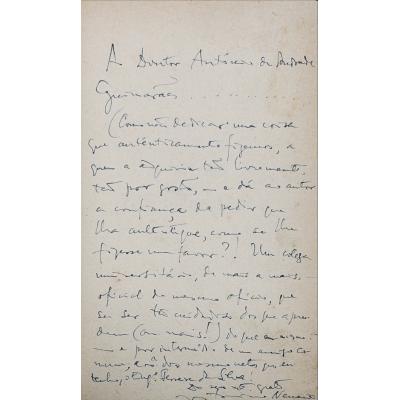 A Doutor António de Andrade
Guimarães . . . . . . . . . .
(Como não dedicar uma coisa
que autenticamente fizemos, a
quem a adquiriu tão livremente,
tão por gosto, — e dá ao autor
a confiança de pedir que
lha autentique, como se lhe
fizesse um favor?). Um colega
universitário, de mais a mais
oficial do mesmo ofício, que
sei ser tão cuidadoso dos que apren-
dem (ou mais!) do que ensina
— e por intermédio de um amigo co-
mum, dos
tenho, o Eng. Teresa da Silva.
Do grato
Nemésio